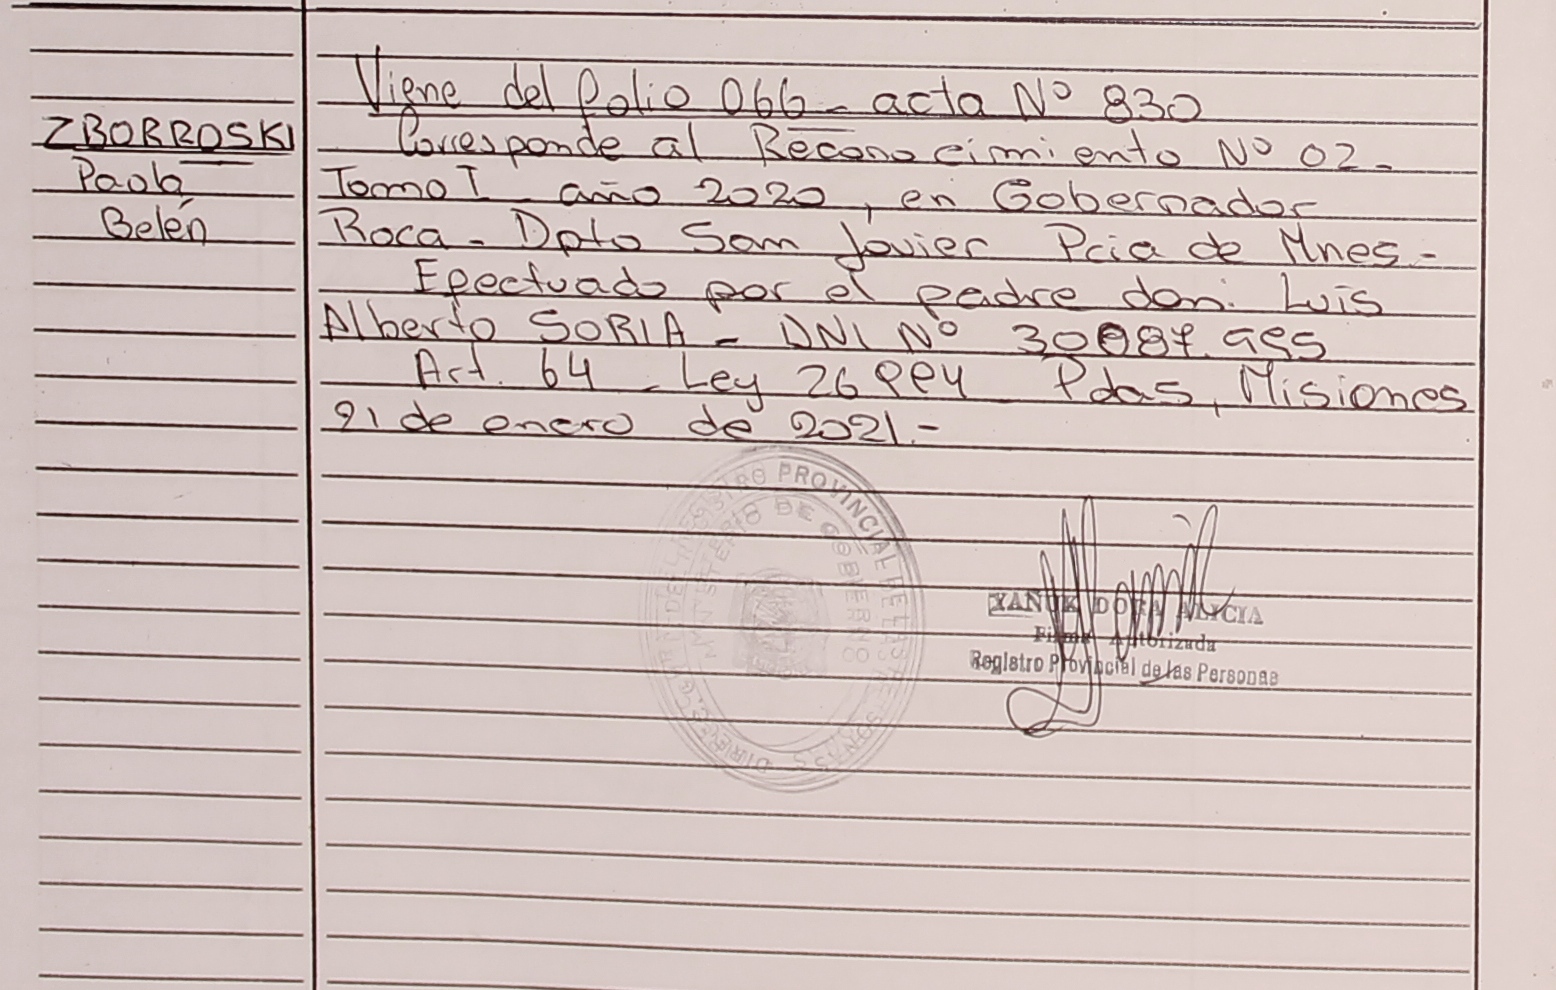 ZBORROSKI
Paola
Belén
Viene del folio 066 - acta Nº 830
Corresponde al Reconocimiento Nº 02 -
Tomo I - año 2020, en Gobernador
Roca - Dpto San Javier Pcia de Mnes -
Efectuado por el padre don: Luis
Alberto SORIA - DNI Nº
Art. 64 - Ley 26994 Pdas, Misiones
21 de enero de 2021.-
REGISTRO PROVINCIAL DE LAS PERSONAS
MINISTERIO DE GOBIERNO
YANUK DORA ALICIA
Firma Autorizada
Registro Provincial de las Personas